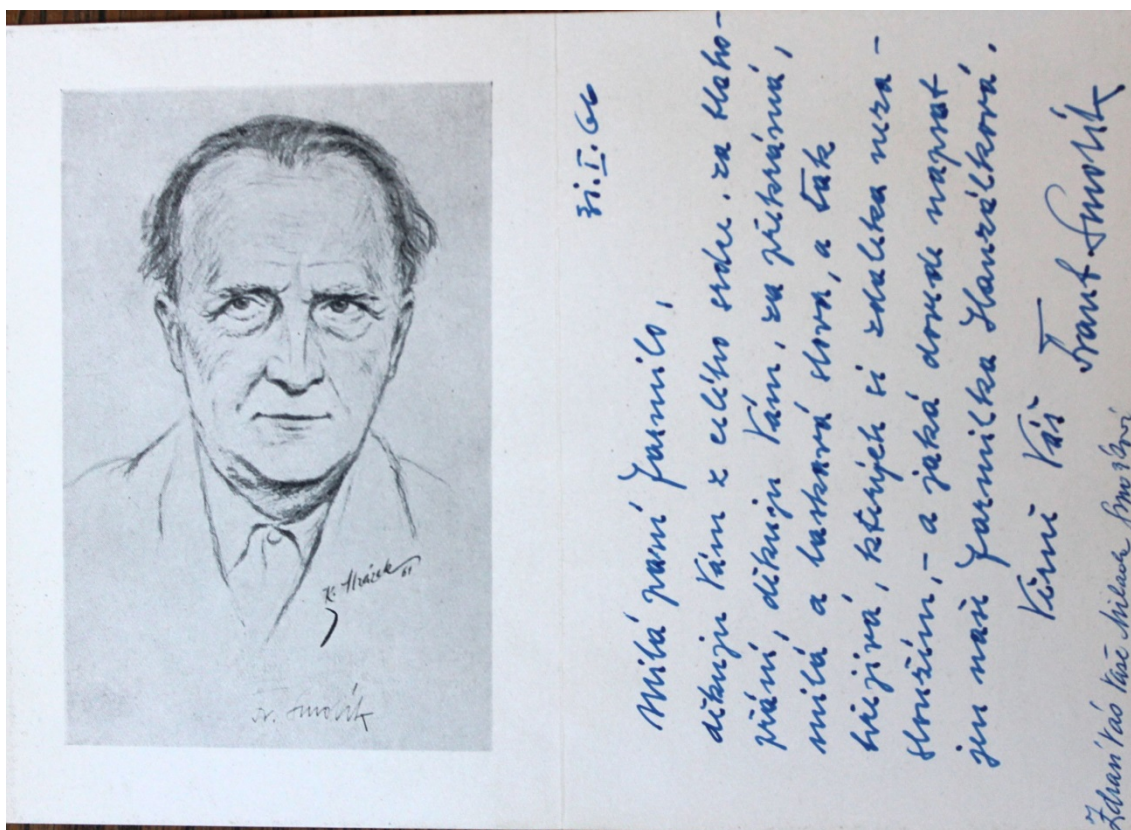 K. Strázek 61
Fr. Smolík
31.I.66
Milá paní Jarmilo,
děkuju Vám z celého srdce, za blaho-
přání, děkuju Vám, za překrásná,
milá a laskavá slova, a tak
hřejivá, kterých si zdaleka neza-
sloužím, – a jaká dovede napsat
jen naše Jarmilka Hanzálková.
Věrně Váš Frant. Smolík
Zdraví Vás Vaše Smolíková